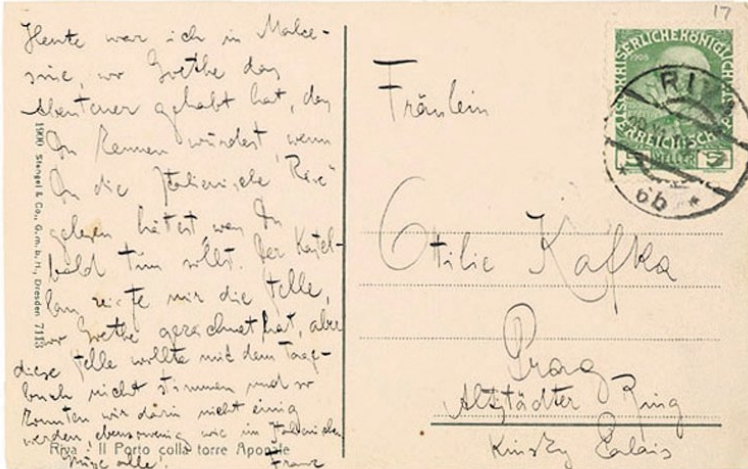 Heute war ich in Malce-
sine, wo Goethe das
Abenteuer gehabt hat, das
Du kennen würdest, wenn
Du die "Italienische Reise"
gelesen hättest, was Du
bald tun sollst. Der Kastel-
lan zeigte mir die Stelle,
wo Goethe gezeichnet hat, aber
diese Stelle wollte mit dem Tage-
buch nicht stimmen und so
konnten wir darin nicht einig
werden, ebensowenig wie im Italienischen
Grüße alle!
Franz
Riva: Il Porto colla torre Aponale
1900 Stengel & Co., G.m.b.H., Dresden 7113
17
Fräulein
Ottilie Kafka
Prag
Altstädter Ring
Kinsky Palais
KAISERLICHE KÖNIGLICHE
1908
RIVA
6b